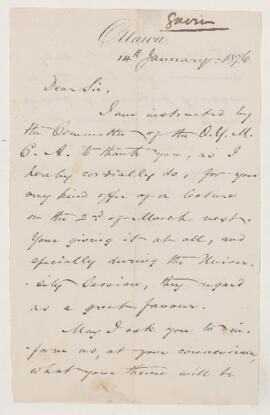 Gavin
Ottawa,
14th January, 1876
Dear Sir,
I am instructed by
the Committee of the O.Y.M.
C.A. to thank you, as I
hereby cordially do, for your
very kind offer of a lecture
on the 2nd of March next.
Your giving it at all, and
specially during the
-sity Session, they regard
as a great favour.
May I ask you to in-
form us, at your convenience,
what your theme will be